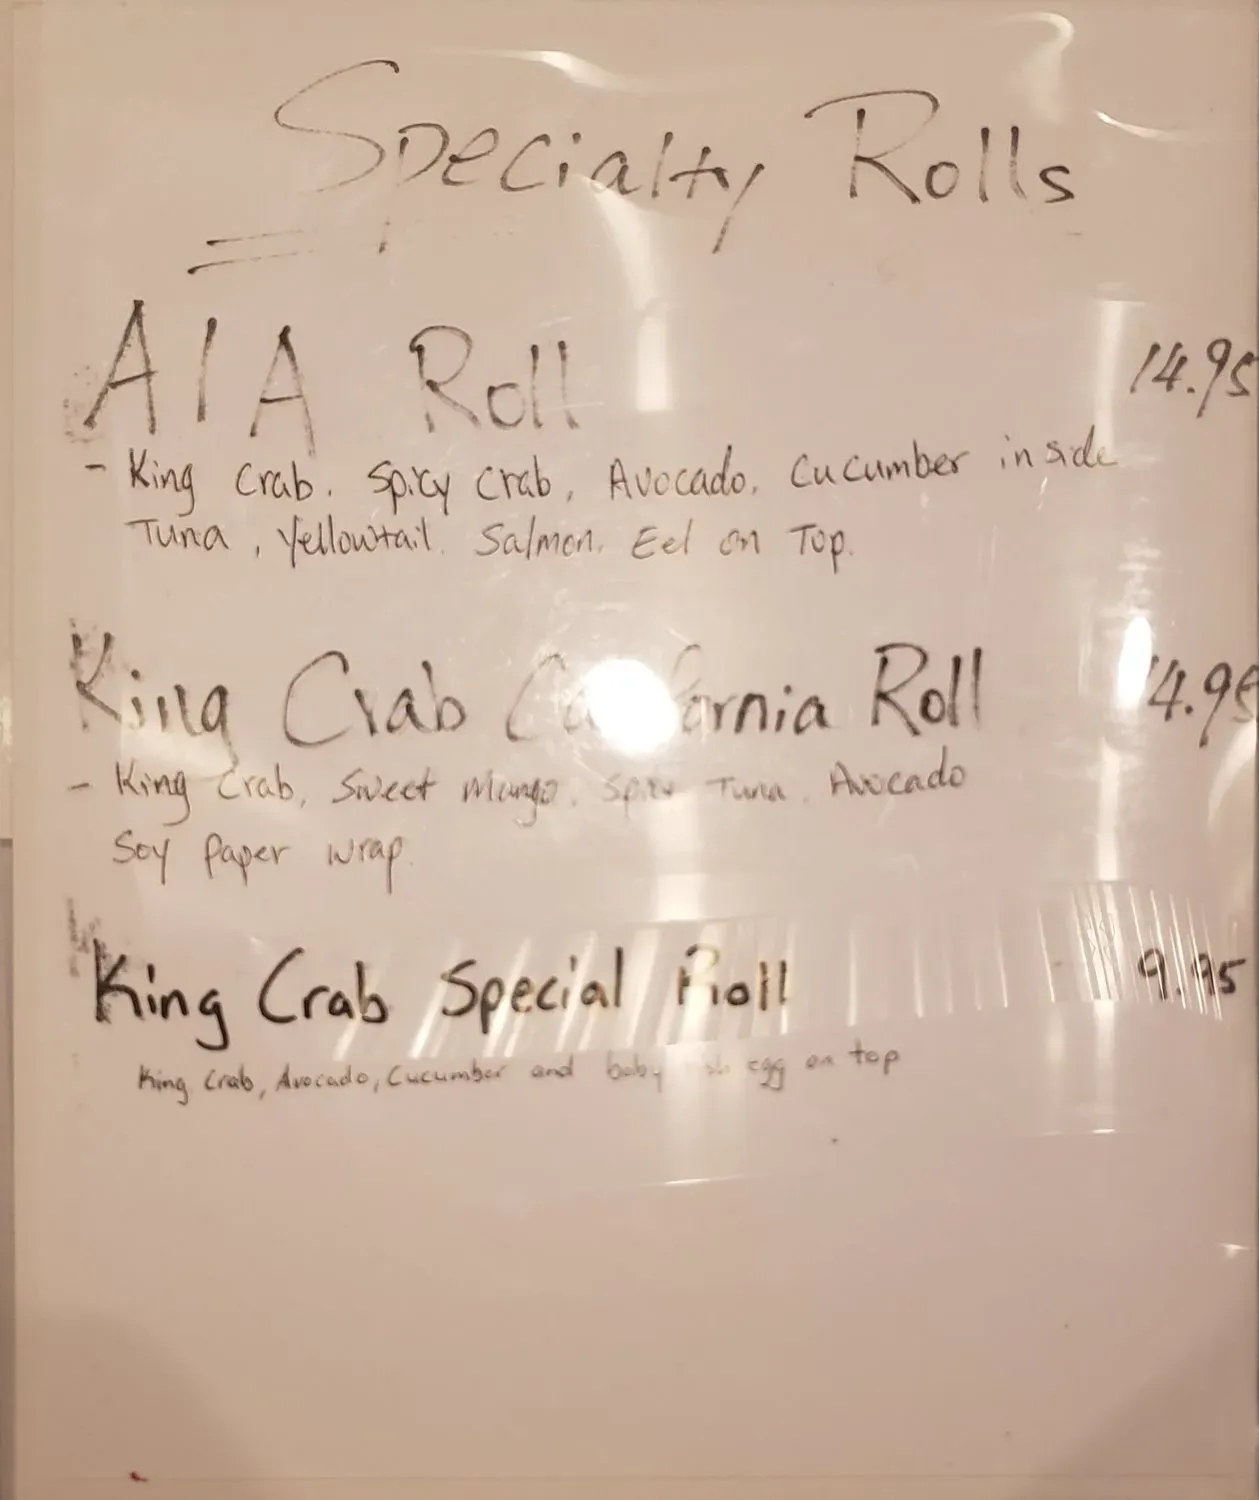 Specialty Rolls
A1A Roll 14.95
- King Crab. Spicy Crab, Avocado. Cucumber inside
Tuna, Yellowtail. Salmon. Eel on Top.
King Crab California Roll 14.95
- King Crab, Sweet Mango, Spicy Tuna, Avocado
Soy paper wrap.
King Crab Special Roll 9.95
King Crab, Avocado, Cucumber and baby egg on top